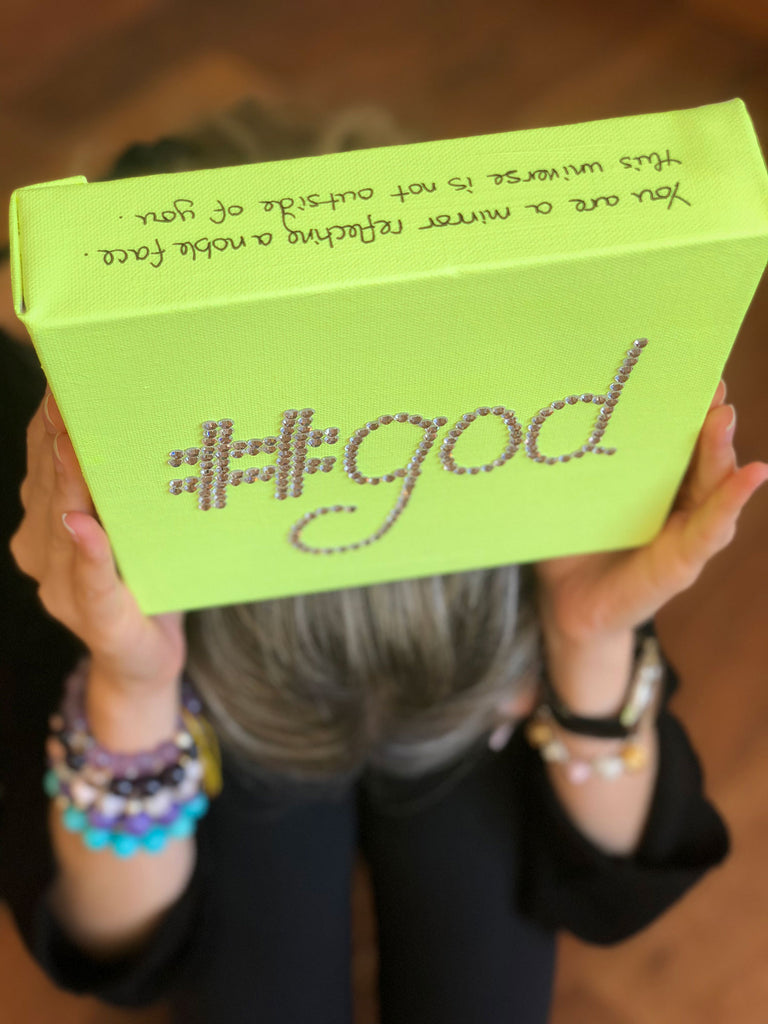 You are a mirror reflecting a noble face.
this universe is not outside of you.
#god